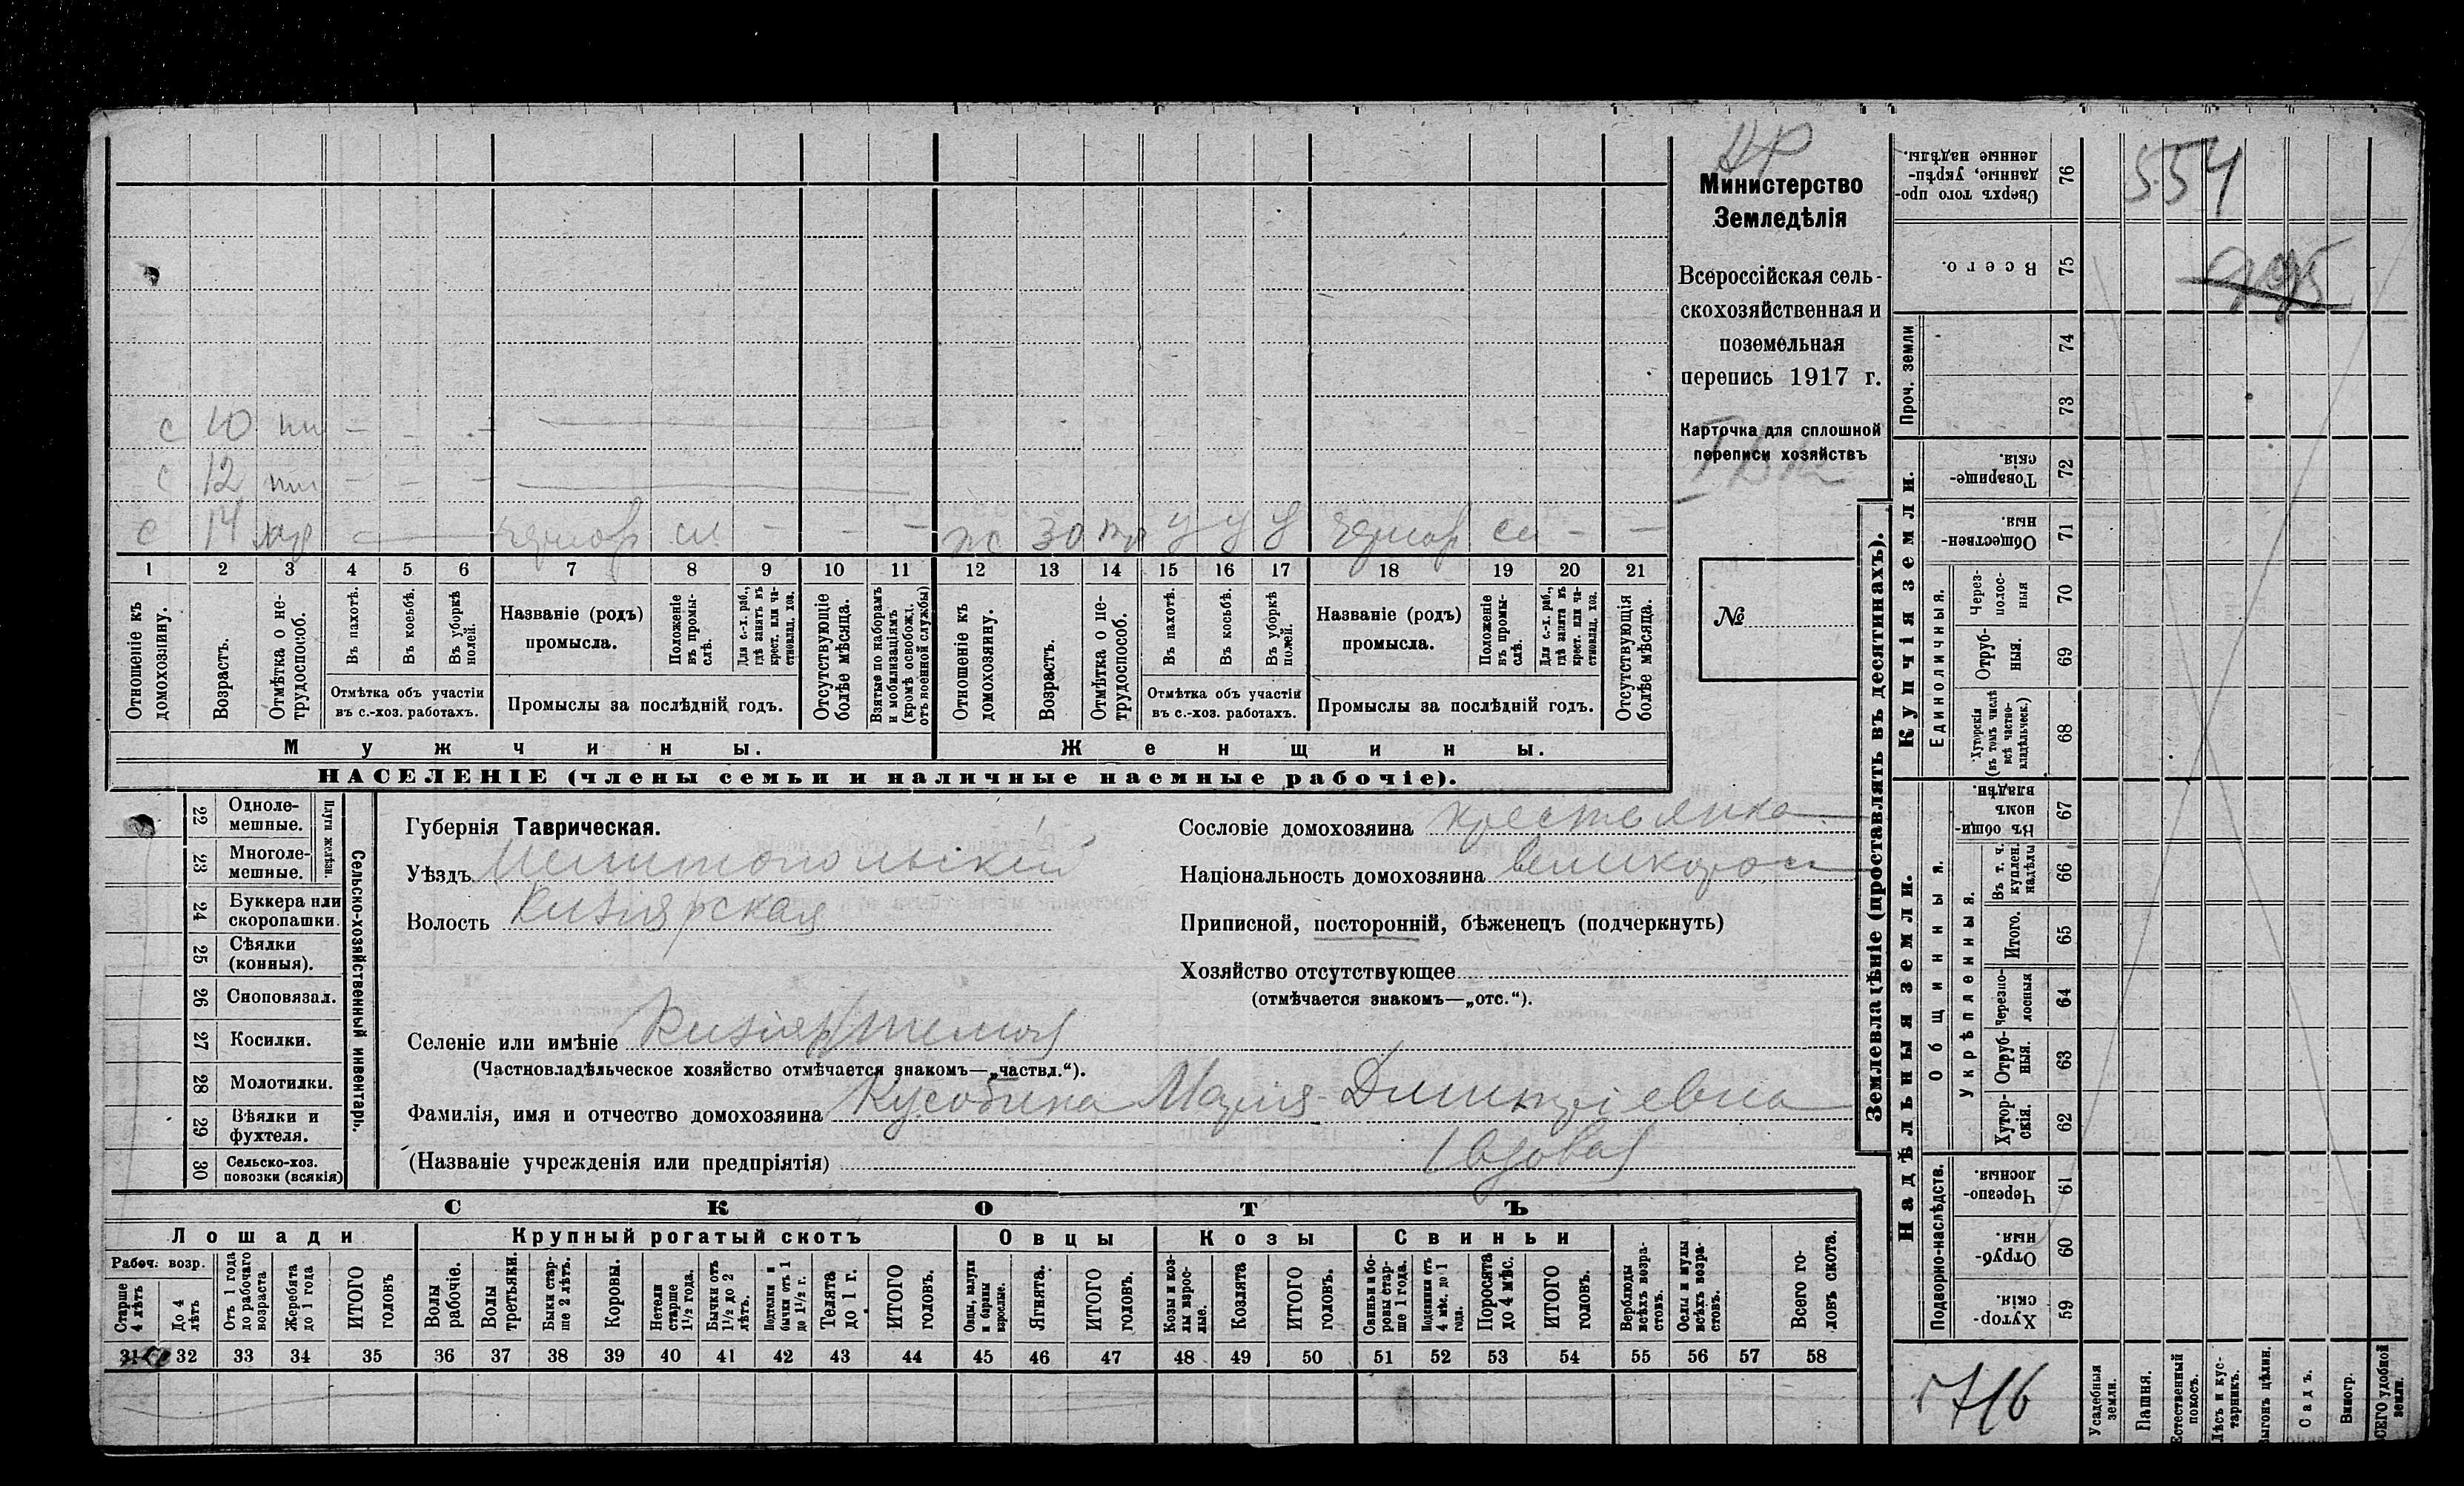 НР
Министерство
Земледѣлія
Всероссійская сель-
скохозяйственная и
поземельная
перепись 1917 г.
Карточка для сплошной
переписи хозяйствъ
№
с 10 пп - - -
с 12 пп - - -
с 14 - - - ж 30 у у у - -
1 2 3 4 5 6 7 8 9 10 11 12 13 14 15 16 17 18 19 20 21
Отношеніе къ домохозяину.
Возрастъ.
Отмѣтка о не-трудоспособ.
Въ пахотѣ.
Въ косьбѣ.
Въ уборкѣ полей.
Отмѣтка объ участіи въ с.-хоз. работахъ.
Названіе (родъ) промысла.
Положеніе въ промы-слѣ.
Для с.-х. раб., гдѣ занятъ въ крест. или ча-стновлад. хоз.
Промыслы за послѣдній годъ.
Отсутствующіе болѣе мѣсяца.
Взятые по наборамъ и мобилизаціямъ (кромѣ освобожд. отъ военной службы)
Отношеніе къ домохозяину.
Возрастъ.
Отмѣтка о не-трудоспособ.
Въ пахотѣ.
Въ косьбѣ.
Въ уборкѣ полей.
Отмѣтка объ участіи въ с.-хоз. работахъ.
Названіе (родъ) промысла.
Положеніе въ промы-слѣ.
Для с.-х. раб., гдѣ занятъ въ крест. или ча-стновлад. хоз.
Промыслы за послѣдній годъ.
Отсутствующія болѣе мѣсяца.
Мужчины. Женщины.
НАСЕЛЕНІЕ (члены семьи и наличные наемные рабочіе).
Сельско-хозяйственный инвентарь.
Плуги желѣзн.
22 Одноле-мешные.
23 Многоле-мешные.
24 Буккера или скоропашки.
25 Сѣялки (конныя).
26 Сноповязал.
27 Косилки.
28 Молотилки.
29 Вѣялки и фухтеля.
30 Сельско-хоз. повозки (всякія)
Губернія Таврическая.
Уѣздъ Мелитопольскій
Волость Кизіярская
Селеніе или имѣніе Кизіяр
(Частновладѣльческое хозяйство отмѣчается знакомъ—„частвл.“).
Фамилія, имя и отчество домохозяина Кусобина Марія Дмитріевна
(Названіе учрежденія или предпріятія) вдова
Сословіе домохозяина крестьянка
Національность домохозяина великорос
Приписной, посторонній, бѣженецъ (подчеркнуть)
Хозяйство отсутствующее
(отмѣчается знакомъ—„отс.“).
СКОТЪ
Лошади
Крупный рогатый скотъ
Овцы
Козы
Свиньи
Рабоч. возр.
Старше 4 лѣтъ
До 4 лѣтъ
Отъ 1 года до рабочаго возраста
Жеребята до 1 года
ИТОГО головъ
Волы рабочіе.
Волы третьяки.
Быки стар-ше 2 лѣтъ.
Коровы.
Нетели старше 1½ года.
Бычки отъ 1½ до 2 лѣтъ.
Подтелки и бычки отъ 1 до 1½ г.
Телята до 1 г.
ИТОГО головъ.
Овцы, валухи и бараны взрослые.
Ягнята.
ИТОГО головъ.
Козы и коз-лы взрос-лые.
Козлята
ИТОГО головъ.
Свиньи и бо-ровы стар-ше 1 года.
Подсвинки отъ 4 мѣс. до 1 года.
Поросята до 4 мѣс.
ИТОГО головъ.
Верблюды всѣхъ возра-стовъ.
Ослы и мулы всѣхъ возра-стовъ.
Всего го-ловъ скота.
31 32 33 34 35 36 37 38 39 40 41 42 43 44 45 46 47 48 49 50 51 52 53 54 55 56 57 58
Землевладѣніе (проставлять въ десятинахъ).
Купчія земли.
Надѣльныя земли.
Сверхъ того про-данные, укрѣп-ленные надѣлы. 76
Всего. 75
Проч. земли 74
73
Товарище-скія. 72
Обществен-ныя. 71
Единоличныя.
Через-полос-ныя 70
Отруб-ныя. 69
Хуторскія (въ томъ числѣ всѣ частно-владѣльческ.) 68
Общинныя.
Въ общи-номъ владѣн. 67
Укрѣпленныя.
Въ т. ч. куплен. надѣлы 66
Итого. 65
Черезпо-лосныя 64
Отруб-ныя. 63
Хутор-скія. 62
Подворно-наслѣдств.
Черезпо-лосныя 61
Отруб-ныя. 60
Хутор-скія. 59
Усадебныя земли.
Пашня.
Естественный покосъ.
Лѣсъ и кус-тарникъ.
Выгонъ цѣлин.
Садъ.
Виногр.
ВСЕГО удобной земли.
554